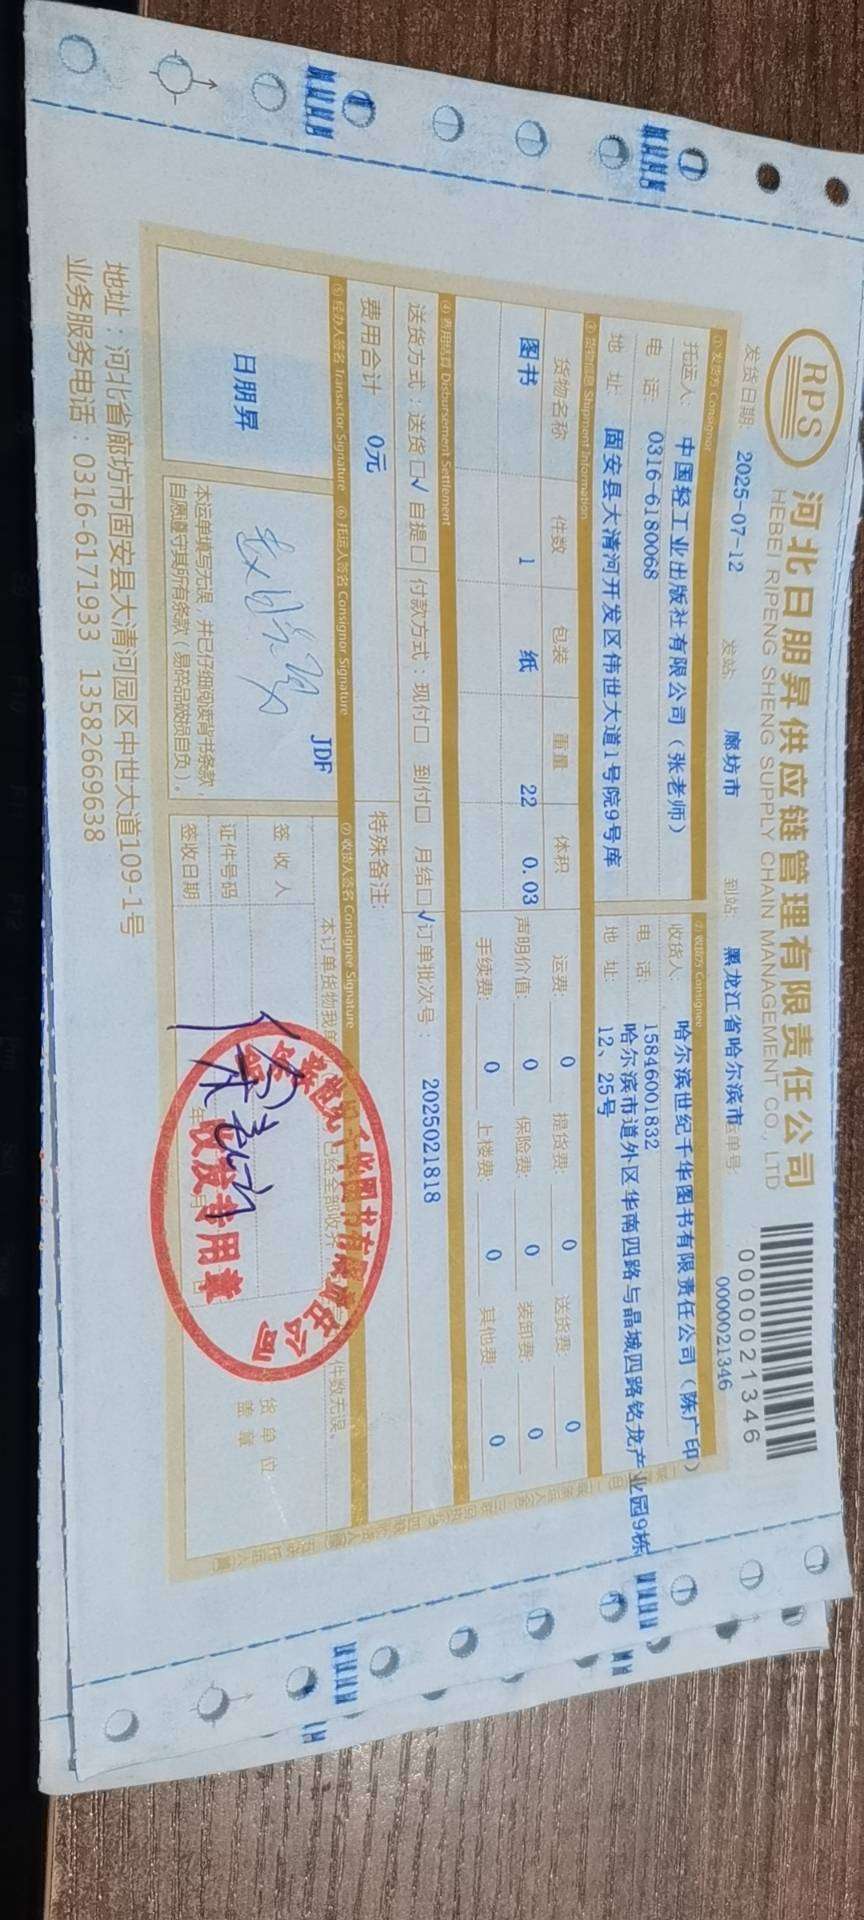 RPS
河北日朋昇供应链管理有限责任公司
HEBEI RIPENG SHENG SUPPLY CHAIN MANAGEMENT CO., LTD
0000021346
发货日期: 2025-07-12 发站: 廊坊市 到站: 黑龙江省哈尔滨市 运单号: 0000021346
① 发货方 Consignor ② 收货方 Consignee
托运人: 中国轻工业出版社有限公司（张老师） 收货人: 哈尔滨世纪千华图书有限责任公司（陈广印）
电 话: 0316-6180068 电 话: 15846001832
地 址: 固安县大清河开发区伟世大道1号院9号库 地 址: 哈尔滨市道外区华南四路与晶城四路铭龙产业园9栋
12、25号
③ 货物信息 Shipment Information
货物名称 件数 包装 重量 体积 运费: 0 提货费: 0 送货费: 0
图书 1 纸 22 0.03 声明价值: 0 保险费: 0 装卸费: 0
手续费: 0 上楼费: 0 其他费: 0
④ 费用结算 Disbursement Settlement
送货方式: 送货□√ 自提□ 付款方式: 现付□ 到付□ 月结□√ 订单批次号: 2025021818
费用合计 0元 特殊备注:
⑤ 经办人签名 Transactor Signature ⑥ 托运人签名 Consignor Signature ⑦ 收货人签名 Consignee Signature
日朋昇
JDF
本运单填写无误，并已仔细阅读背书条款
自愿遵守其所有条款（易碎品破损自负）。
本订单货物我单 已经全部收齐 件数无误。
签 收 人
证件号码
签收日期 年 月 日
货单位
盖 章
千华图书有限责任公司
收发专用章
地址：河北省廊坊市固安县大清河园区中世大道109-1号
业务服务电话：0316-6171933 13582669638